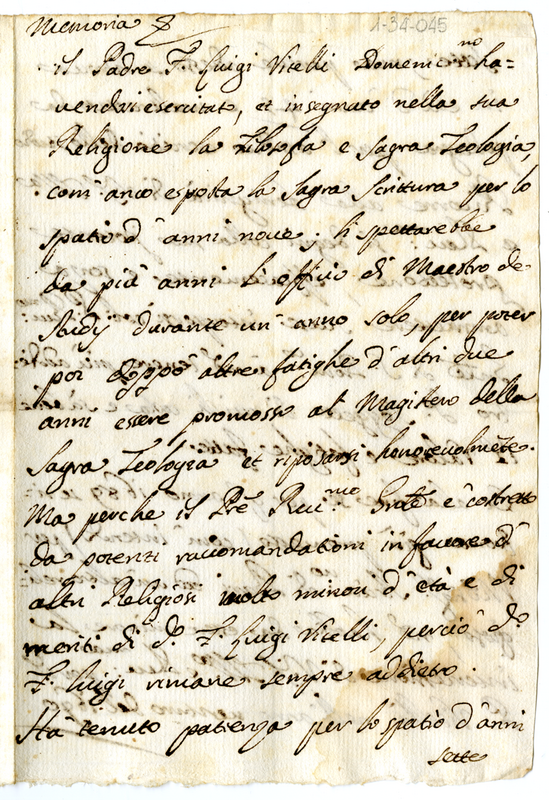 Memoria
1-34-045
il Padre F. Luigi Vitelli Domenic.no ha=
vendovi esercitato, et insegnato nella sua
Religione la Filosofia e Sagra Teologia,
com' anco esposta la Sagra Scrittura per lo
spatio d' anni nove; li spettarebbe
da più anni l' offitio di Maestro de
Studij durante un' anno solo, per poter
poi doppo altre fatighe d' altri due
anni essere promosso al Magistero della
Sagra Teologia et riposarsi honorevolmẽte.
Ma perche il Prẽ Rev.mo Gnãle è cõstretto
da potenti raccomandationi in favore d'
altri Religiosi molto minori d' età e di
meriti di d.o F. Luigi Vitelli, perciò d.o
F. Luigi rimane sempre addietro.
Ha tenuto patienza per lo spatio d' anni
sette